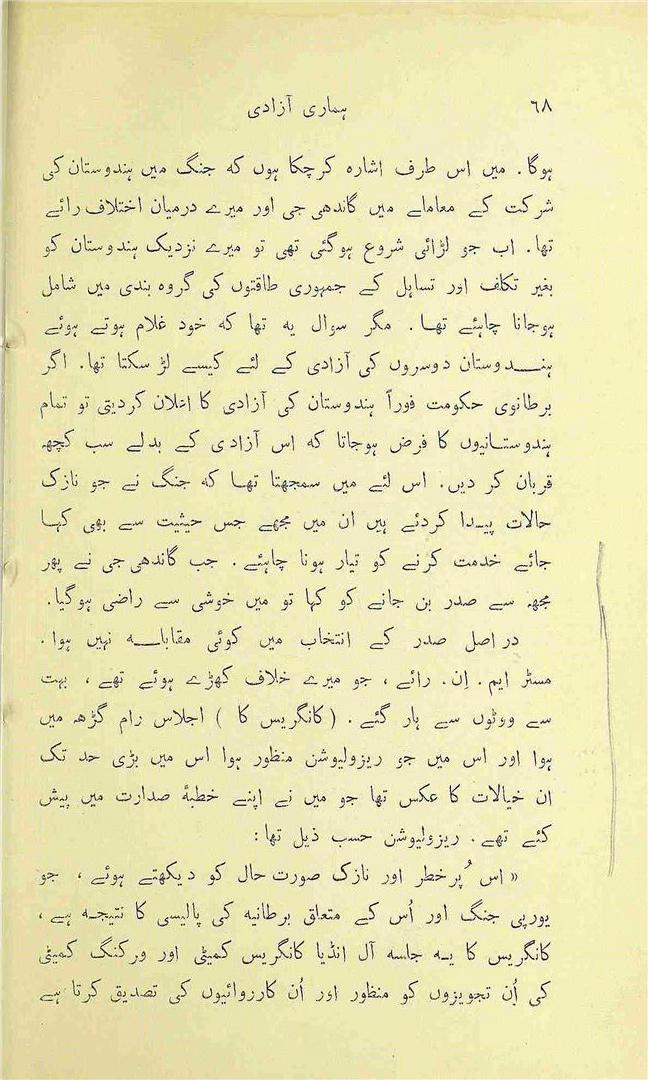 ٦٨ ہماری آزادی
ہوگا. میں اس طرف اشارہ کرچکا ہوں کہ جنگ میں ہندوستان کی
شرکت کے معاملے میں گاندھی جی اور میرے درمیان اختلاف رائے
تھا. اب جو لڑائی شروع ہوگئی تھی تو میرے نزدیک ہندوستان کو
بغیر تکلف اور تساہل کے جمہوری طاقتوں کی گروہ بندی میں شامل
ہوجانا چاہئے تھا. مگر سوال یہ تھا کہ خود غلام ہوتے ہوئے
ہندوستان دوسروں کی آزادی کے لئے کیسے لڑ سکتا تھا. اگر
برطانوی حکومت فوراً ہندوستان کی آزادی کا اعلان کردیتی تو تمام
ہندوستانیوں کا فرض ہوجاتا کہ اس آزادی کے بدلے سب کچھ
قربان کر دیں. اس لئے میں سمجھتا تھا کہ جنگ نے جو نازک
حالات پیدا کردئے ہیں ان میں مجھے جس حیثیت سے بھی کہا
جائے خدمت کرنے کو تیار ہونا چاہئے. جب گاندھی جی نے پھر
مجھ سے صدر بن جانے کو کہا تو میں خوشی سے راضی ہوگیا.
دراصل صدر کے انتخاب میں کوئی مقابلہ نہیں ہوا.
مسٹر ایم. اِن. رائے، جو میرے خلاف کھڑے ہوئے تھے، بہت
سے ووٹوں سے ہار گئے. (کانگریس کا) اجلاس رام گڑھ میں
ہوا اور اس میں جو ریزولیوشن منظور ہوا اس میں بڑی حد تک
ان خیالات کا عکس تھا جو میں نے اپنے خطبۂ صدارت میں پیش
کئے تھے. ریزولیوشن حسب ذیل تھا:
«اس پُرخطر اور نازک صورت حال کو دیکھتے ہوئے، جو
یورپی جنگ اور اُس کے متعلق برطانیہ کی پالیسی کا نتیجہ ہے،
کانگریس کا یہ جلسہ آل انڈیا کانگریس کمیٹی اور ورکنگ کمیٹی
کی اُن تجویزوں کو منظور اور اُن کارروائیوں کی تصدیق کرتا ہے